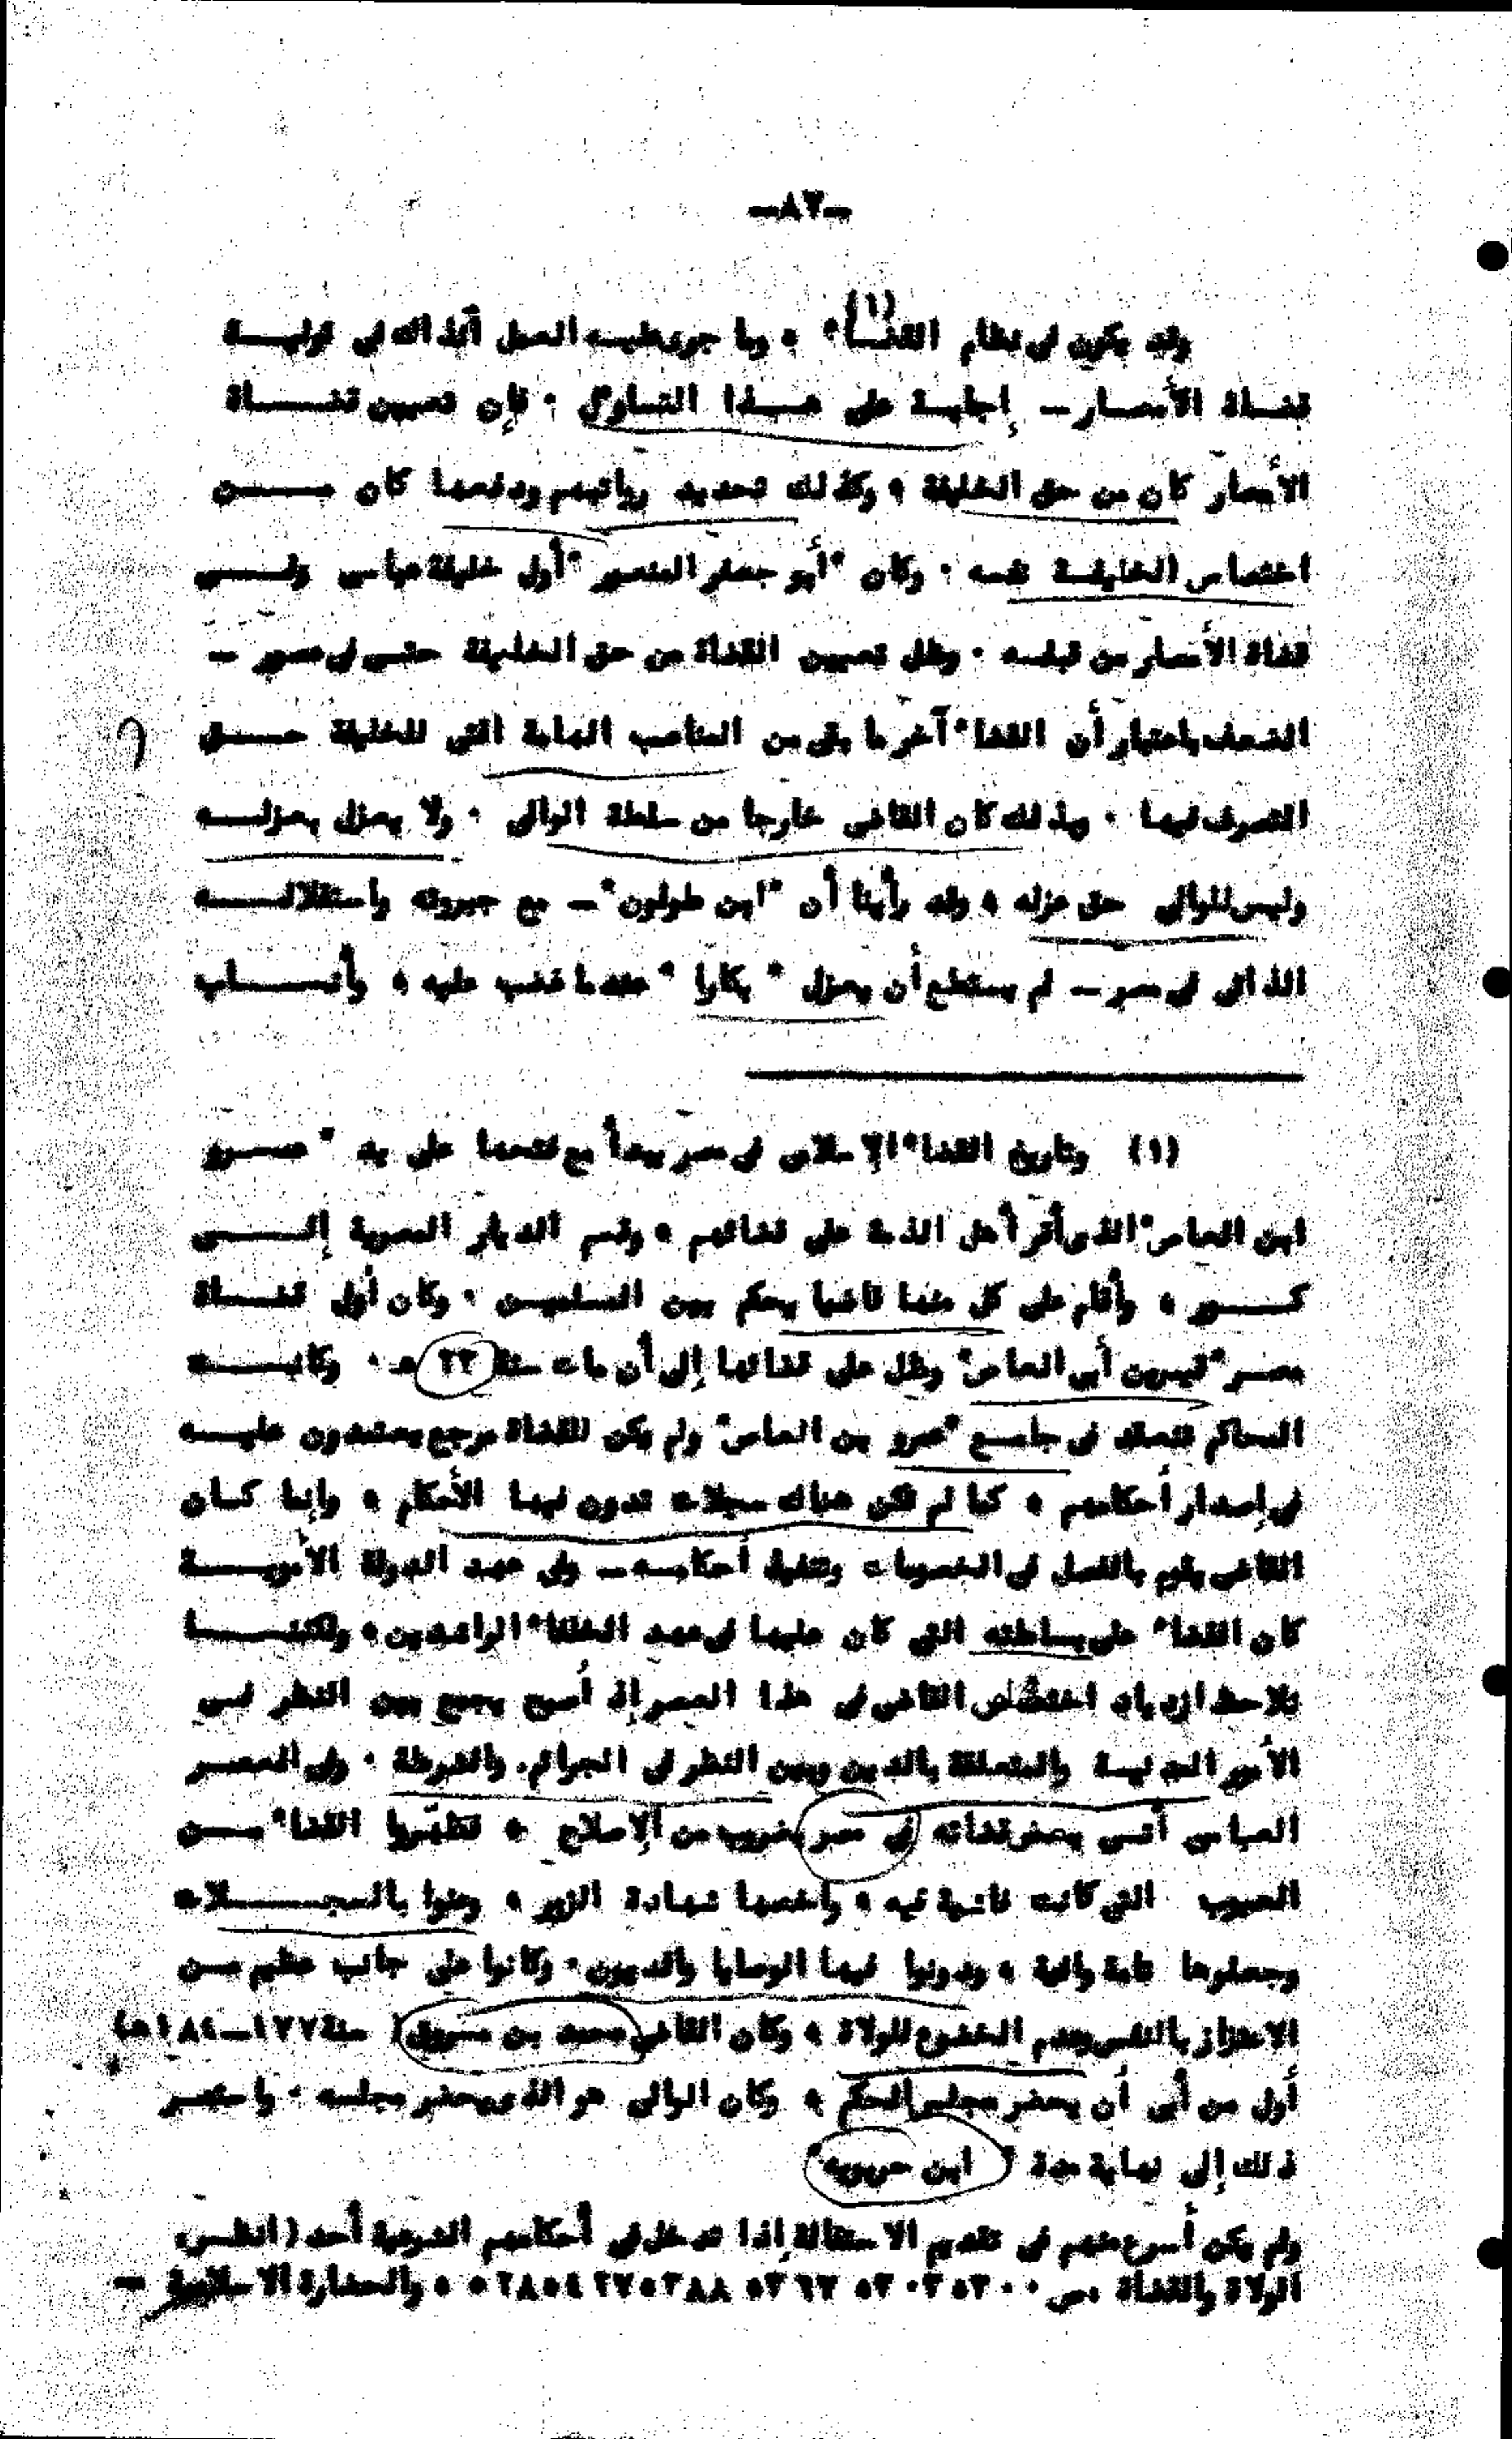 -٨٢-
وقد يكون فى نظام القضاء (١) ، وما جرى عليه العمل آنذاك فى توليــة
قضاة الأمصار - إجابة على هذا التساؤل . فإن تعيين قضاة
الأمصار كان من حق الخليفة ، وكذلك تحديد رواتبهم ودفعها كان من
اختصاص الخليفة نفسه . وكان "أبو جعفر المنصور" أول خليفة عباسى ولى
قضاة الأمصار من قبله . وظل تعيين القضاة من حق الخليفة حتى فى عصور -
الضعف باعتبار أن القضاء آخر ما بقى من المناصب الهامة التى للخليفة حق
التصرف فيها . وبذلك كان القاضى خارجا من سلطة الوالى . ولا يعزل بعزله
وليس للوالى حق عزله ، وقد رأينا أن "ابن طولون" - مع جبروته واستقلاله
الذاتى فى مصر - لم يستطع أن يعزل "بكارا" عندما غضب عليه ، وأناب
(١) وتاريخ القضاء الإسلامى فى مصر يبدأ مع فتحها على يد "عمرو
ابن العاص" الذى أقر أهل الذمة على قضائهم ، وقسم الديار المصرية إلى
كور ، وأقام على كل منها قاضيا يحكم بين المسلمين . وكان أول قضاة
مصر "قيس بن أبى العاص" وظل على قضائها إلى أن مات سنة ٢٣ هـ . وكانت
المحاكم تنعقد فى جامع "عمرو بن العاص" ولم يكن للقضاة مرجع يعتمدون عليه
فى إصدار أحكامهم ، كما لم تكن هناك سجلات تدون فيها الأحكام ، وإنما كان
القاضى يقوم بالفصل فى الخصومات وتنفيذ أحكامه - وفى عهد الدولة الأموية
كان القضاء على بساطته التى كان عليها فى عهد الخلفاء الراشدين ، ولكننا
نلاحظ ازدياد اختصاص القاضى فى هذا العصر إذ أصبح يجمع بين النظر فى
الأمور المدنية والمتعلقة بالدين وبين النظر فى الجرائم والشرطة . وفى العصر
العباسى أتى بعض قضاته فى مصر بضروب من الإصلاح ، فطهّروا القضاء من
العيوب التى كانت فاشية فيه ، وأخصها شهادة الزور ، وعنوا بالسجلات
وجعلوها تامة وافية ، ودونوا فيها الوصايا والديون . وكانوا على جانب عظيم من
الاعتزاز بالنفس وعدم الخضوع للولاة ، وكان القاضى محمد بن مسروق (سنة ١٧٧-١٨٤هـ)
أول من أبى أن يحضر مجلس الحكم ، وكان الوالى هو الذى يحضر مجلسه . واستمر
ذلك إلى نهاية مدة "ابن حربويه"
ولم يكن أسرع منهم فى تقديم الاستقالة إذا تدخل فى أحكامهم الشرعية أحد (انظر
الولاة والقضاة ص ٣٠٠ والحضارة الاسلامية -